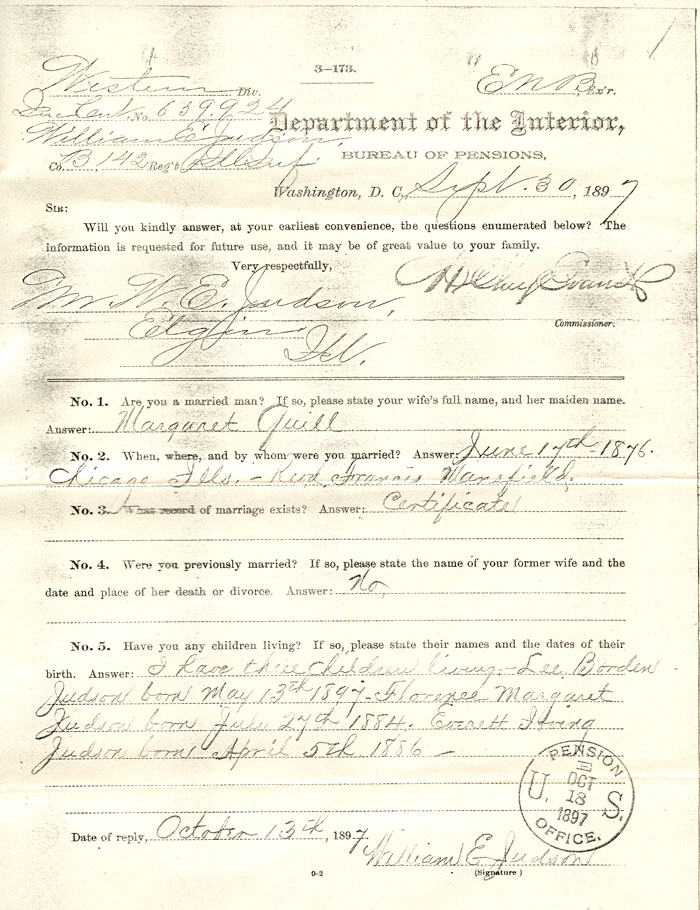 3—173.
Western Div. E N B Ex'r.
Inv. Cert. No. 639924
William E Judson, Department of the Interior,
Co. B, 142 Reg't Ill Inf BUREAU OF PENSIONS,
Washington, D. C., Sept. 30, 1897
SIR:
Will you kindly answer, at your earliest convenience, the questions enumerated below? The
information is requested for future use, and it may be of great value to your family.
Very respectfully,
Mr. W. E. Judson, H Clay Evans
Elgin Commissioner.
Ill.
No. 1. Are you a married man? If so, please state your wife's full name, and her maiden name.
Answer: Margaret Quill
No. 2. When, where, and by whom were you married? Answer: June 17th - 1876.
Chicago Ills. - Revd. Francis Mansfield.
No. 3. What record of marriage exists? Answer: Certificate
No. 4. Were you previously married? If so, please state the name of your former wife and the
date and place of her death or divorce. Answer: No,
No. 5. Have you any children living? If so, please state their names and the dates of their
birth. Answer: I have three children living - Lee Borden
Judson born May 13th 1897 - Florence Margaret
Judson born July 27th 1884. Everett Irving
Judson born April 5th 1886 —
PENSION
U. S.
OCT
18
1897
OFFICE.
Date of reply, October 13th, 1897.
William E Judson
0-2 (Signature)